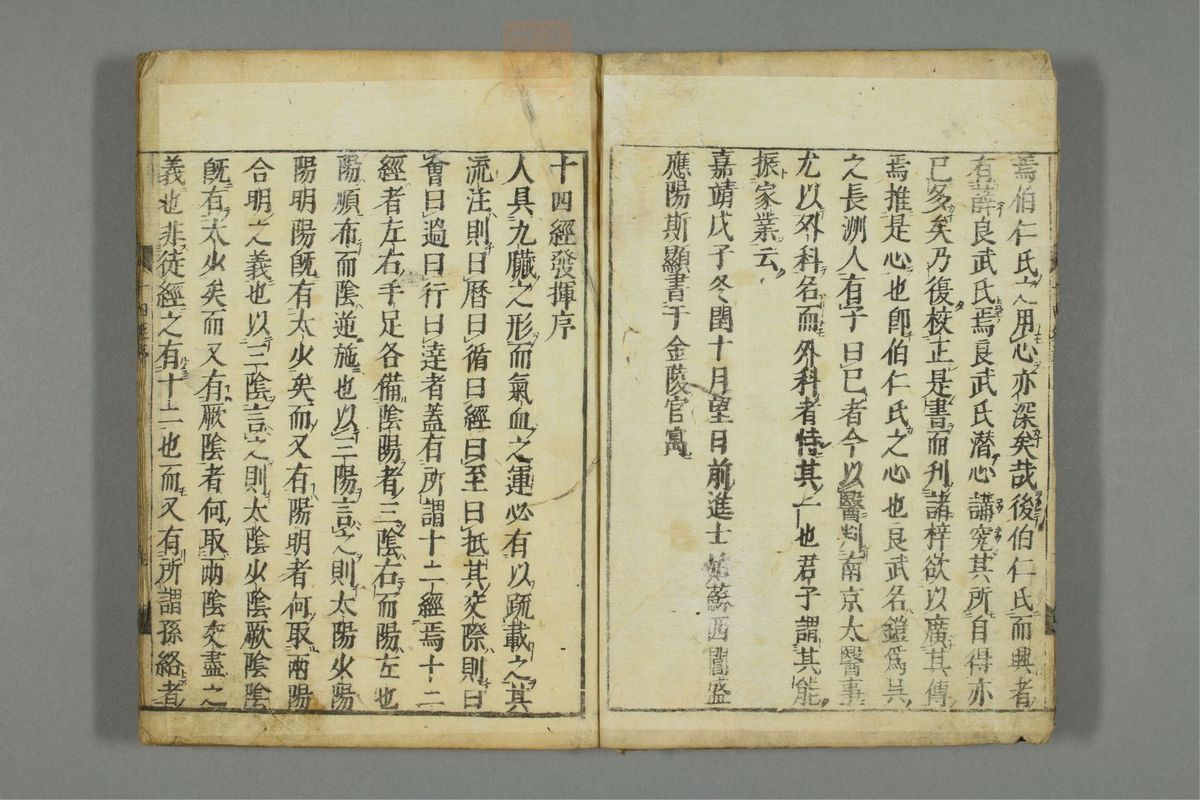 焉伯仁氏之用心亦深矣哉後伯仁氏而興者
有薛良武氏焉良武氏潜心講究其所自得亦
已多矣乃復校正是書而刋諸梓欲以廣其傳
焉推是心也卽伯仁氏之心也良武名鎧爲吳
之長洲人有子曰巳者今以醫判南京太醫事
尤以外科名而外科者特其一也君子謂其能
振家業云
嘉靖戊子冬閏十月望日前進士姑蘇西閶盛
應陽斯顯書于金陵官寓
十四經發揮序
人具九臟之形而氣血之運必有以疏載之其
流注則曰曆曰循曰經曰至曰抵其交際則曰
會曰過曰行曰達者蓋有所謂十二經焉十二
經者左右手足各備陰陽者三陰右而陽左也
陽順布而陰逆施也以三陽言之則太陽少陽
陽明陽旣有太少矣而又有陽明者何取兩陽
合明之義也以三陰言之則太陰少陰厥陰陰
旣有太少矣而又有厥陰者何取兩陰交盡之
義也非徒經之有十二也而又有所謂孫絡者